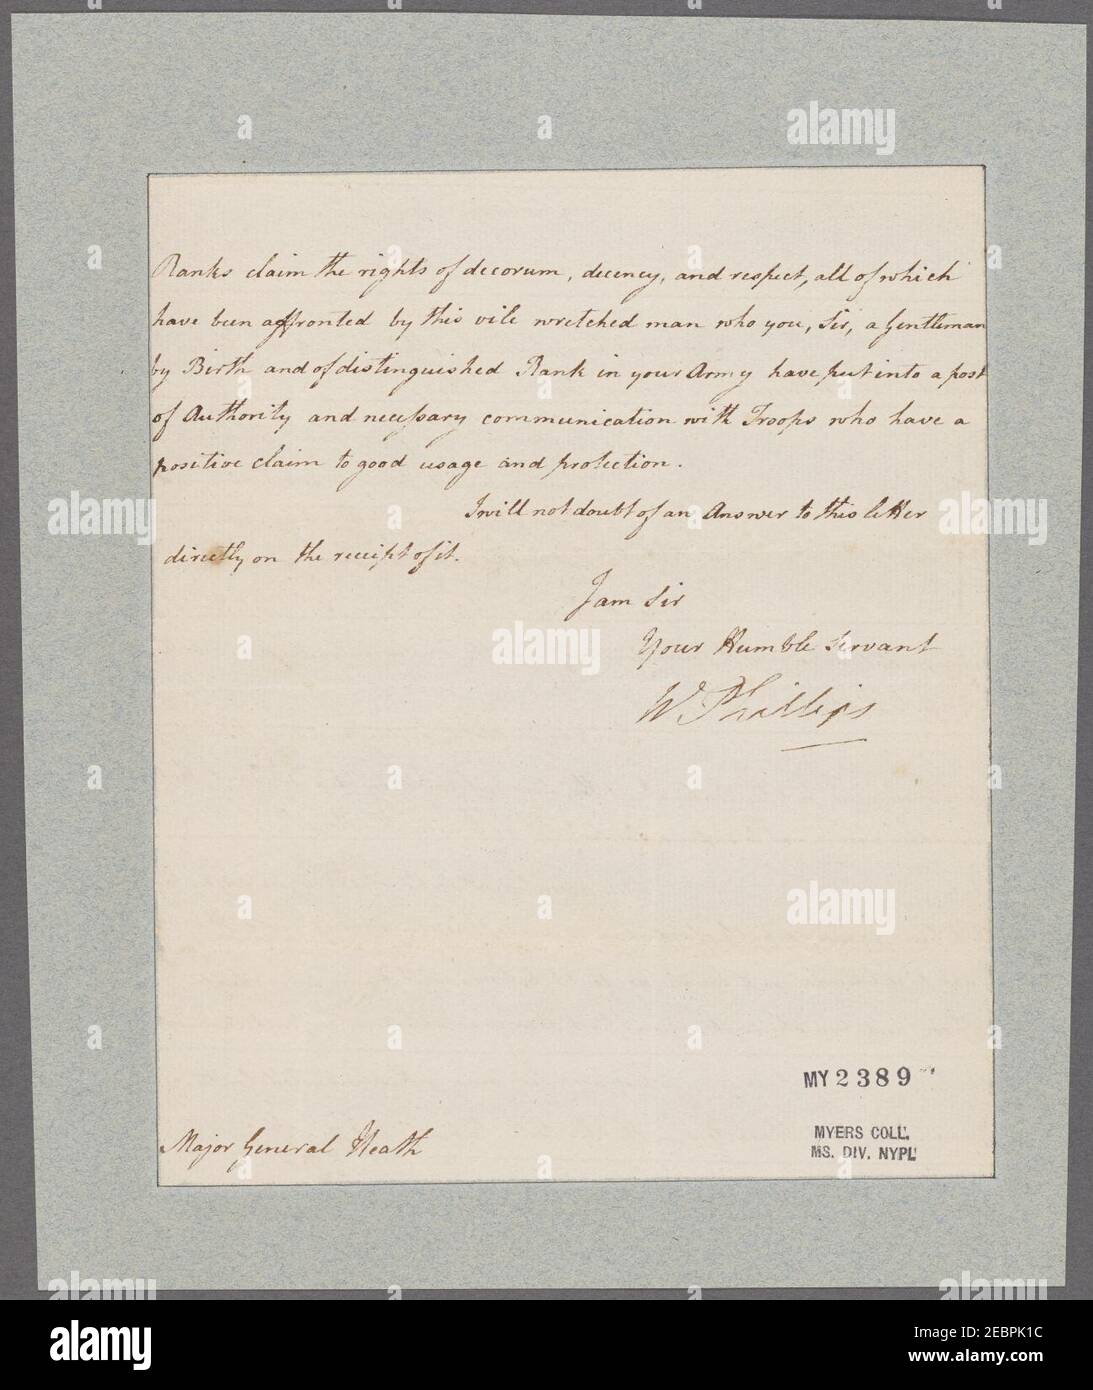 Ranks claim the rights of decorum, decency, and respect, all of which
have been affronted by this vile wretched man who you, Sir, a Gentleman
by Birth and of distinguished Rank in your Army have put into a post
of Authority and necessary communication with Troops who have a
positive claim to good usage and protection.
I will not doubt of an Answer to this letter
directly on the receipt of it.
I am Sir
Your Humble Servant
W. Phillips
MY 2389
MYERS COLL.
MS. DIV. NYPL
Major General Heath
alamy
alamy
alamy
alamy
alamy
alamy
alamy
Image ID: 2EBPK1C
www.alamy.com